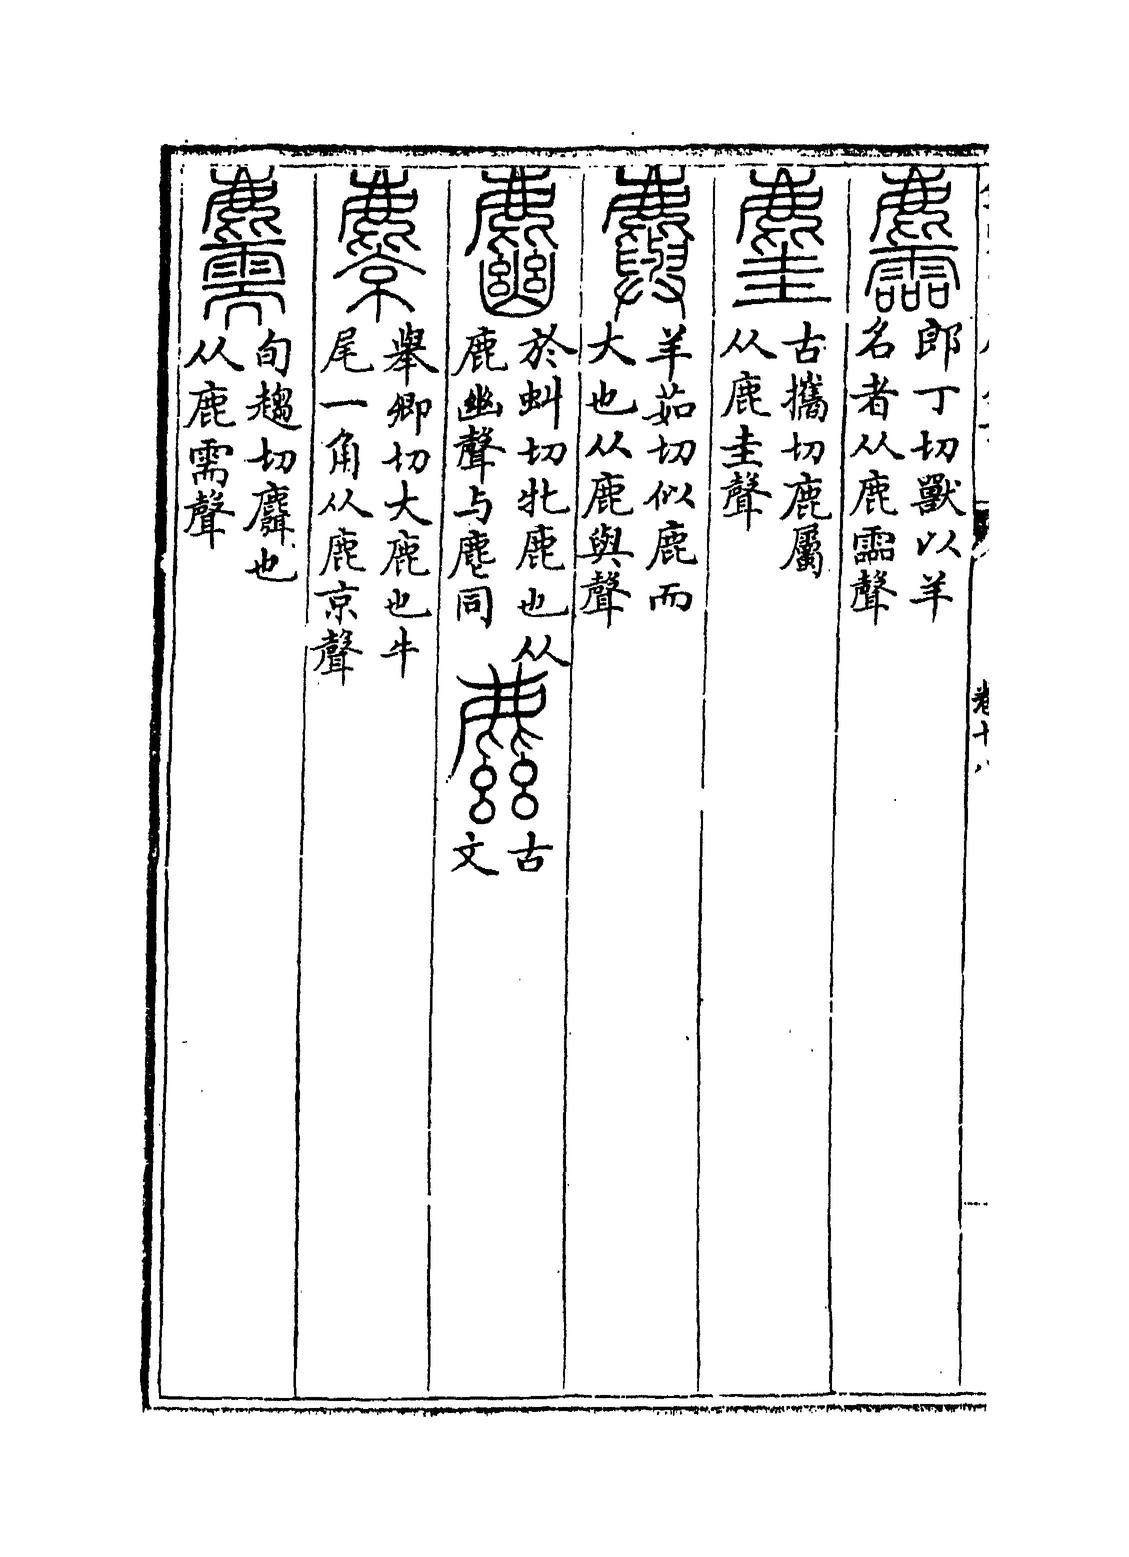 麢
郎丁切獸以羊
名者从鹿霝聲
古攜切鹿屬
从鹿圭聲
羊茹切似鹿而
大也从鹿與聲
於虯切牝鹿也从
鹿幽聲与麀同
古
文
麖
舉卿切大鹿也牛
尾一角从鹿京聲
旬趨切麛也
从鹿需聲
卷十八